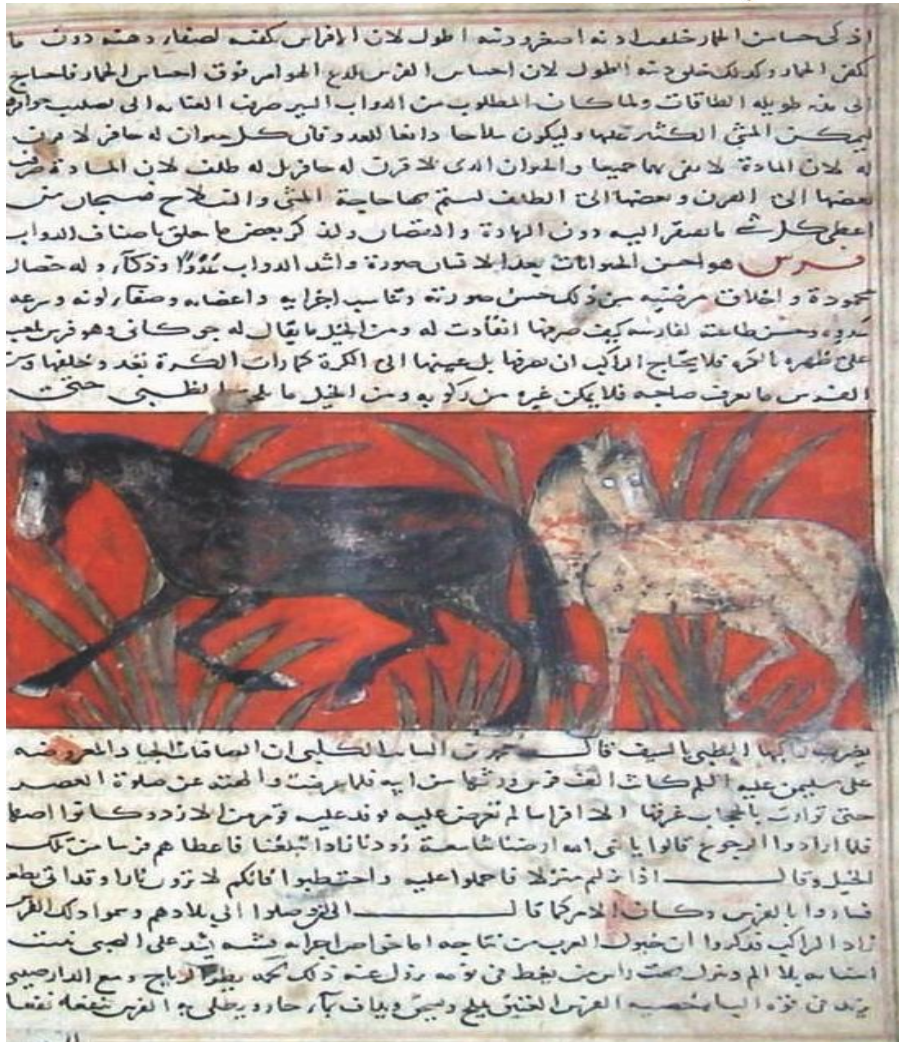 اذكى حسا من الحمار خلف اذنه اصغر ورته اطول لان الافراس كفته لصغار دهنه دون ما
يكفى الحمار وكذلك خلق ذنبه اطول لان احساس الفرس بلدغ الهوام فوق احساس الحمار فاحتاج
الى ذنبه طويله الطاقات ولما كان المطلوب من الدواب السير صرف العناية الى تصليب حوافرها
ليمكن المشى الكثير عليها وليكون سلاحا دافعا للعدو فان كل حيوان له حافر لا قرن
له لان المادة لا تفى بهما جميعا والحيوان الذى لا قرن له حافر بل له ظلف لان المادة صرفت
بعضها الى القرن وبعضها الى الظلف ليتم بهما حاجة المشى والسلاح فسبحان من
اعطى كل شئ ما يفتقر اليه دون الزيادة والنقصان ولنذكر بعض ما خلق باصناف الدواب
فرس هو احسن الحيوانات بعد الانسان صورة واشد الدواب عدوا وذكآء وله خصال
محمودة و اخلاق مرضيه من ذلك حسن صورته وتناسب اجزايه واعضايه وصفاء لونه وسرعه
عدوه وحسن طاعته لفارسه كيف صرفها انقادت له ومن الخيل ما يقال له جوكانى وهو فرس يلعب
على ظهره بالكره فلا يحتاج الراكب ان يصرفها بل عينها الى الكرة كما رات الكرة تعد وخلفها ومن
الفرس ما يعرف صاحبه فلا يمكن غيره من ركوبه ومن الخيل ما يلحق الظبى حتى
يضرب راكبها الظبى بالسيف قال محمد بن السائب الكلبى ان الصافنات الجياد المعروضه
على سليمن عليه السلم كانت الف فرس ورثها من ابيه فلما عرضت والهته عن صلوة العصر
حتى توارت بالحجاب عرقبها الا افراسا لم تعرض عليه فوفد عليه قوم من الازد وكانوا اصهاره
فلما ارادوا الرجوع قالوا يا نبى الله ارضنا شاسعة زودنا زادا تبلغنا فاعطاهم فرسا من تلك
الخيل وقال اذا نزلتم منزلا فاحملوا عليه واحتطبوا فانكم لا ترون نارا وقد اتى بطعم
فساروا بالفرس وكان الامر كما قال الى ان وصلوا الى بلادهم وسموا ذلك الفرس
زاد الراكب فذكروا ان خيول العرب من نتاجه اما خواص اجزايه فسنه يشد على الصبى نبت
اسنانه بلا الم ويترك تحت راس من يغط فى نومه يزول عنه ذلك لحمه يطرد الرياح ومع الدارصينى
يزيد فى قوة الباه خصية الفرس الفتيق يملح ويسحق ويداف بماء حار ويطلى به الفرس ينفعه نفعا